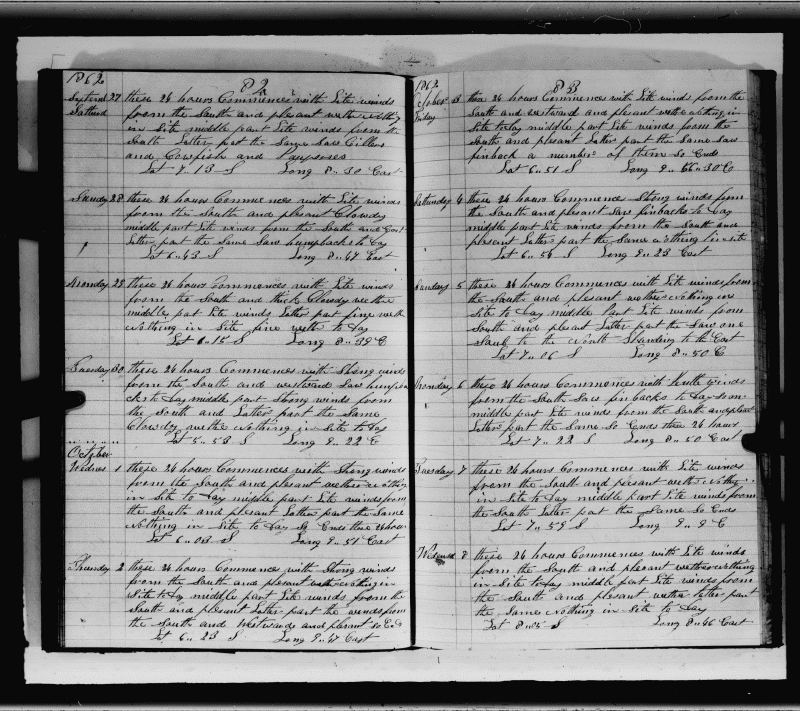 1862
82
Septembr 27 these 24 hours Commences with Lite winds
Saturd from the South and plesant wether Nothing
in Site middle part Lite winds from the
South Latter part the Same Saw Killers
and Cowfish and Pauposes
Lat 7 " 13 S Long 8 " 30 East
Sunday 28 these 24 hours Commences with Lite winds
from the South and plesant Clowdy
middle part Lite winds from the South and East
Latter part the Same Saw humpbacks to Day
Lat 6 " 43 S Long 8 " 47 East
Monday 29 these 24 hours Commences with Lite winds
from the South and thick Clowdy wether
middle part Lite winds Latter part fine weth
Nothing in Site fine wether to Day
Lat 6 " 15 S Long 8 " 39 E
Tuesday 30 these 24 hours Commences with Strong winds
from the South and westward Saw humpba
cks to Day middle part Strong winds from
the South and Latter part the Same
Clowdy wether Nothing in Site to Day
Lat 5 " 53 S Long 9 " 22 E
October
Wednes 1 these 24 hours Commences with Strong winds
from the South and plesant wether Nothing
in Site to Day middle part Lite winds from
the South and plesant Latter part the Same
Nothing in Site to Day So Ends these 24 hours
Lat 6 " 03 S Long 9 " 51 East
Thursday 2 these 24 hours Commences with Strong winds
from the South and plesant wether Nothing in
Site to Day middle part Lite winds from the
South and plesant Latter part the winds from
the South and Westward and plesant So Ends
Lat 6 " 23 S Long 9 " 47 East
1862
83
October 3 these 24 hours Commences with Lite winds from the
Friday South and westward and plesent wether Nothing in
Site to Day middle part Lite winds from the
South and plesent Latter part the Same Saw
finback a number of them So Ends
Lat 6 " 51 S Long 9 " 56 " 30 E
Saturnday 4 these 24 hours Commences with Strong winds from
the South and plesant Saw finbacks to Day
middle part Lite winds from the South and
plesent Latter part the Same Nothing in Site
Lat 6 " 54 S Long 9 " 23 East
Sunday 5 these 24 hours Commences with Lite winds from
the South and plesant wether Nothing in
Site to Day middle part Lite winds from
South and plesent Latter part the Saw one
Saul to the North Standing to the East
Lat 7 " 06 S Long 8 " 50 E
Monday 6 these 24 hours Commences with winds
from the South Saw finbacks to Day
middle part Lite winds from the South and plesent
Latter part the Same So Ends these 24 hours
Lat 7 " 22 S Long 8 " 50 East
Tuesday 7 these 24 hours Commences with Lite winds
from the South and plesant wether Nothing
in Site to Day middle part Lite winds from
the South Latter part the Same So Ends
Lat 7 " 59 S Long 9 " 9 E
Wedensd 8 these 24 hours Commences with Lite winds
from the South and plesant wether Nothing
in Site to Day middle part Lite winds from
the South and plesent wether Latter part
the Same Nothing in Site to Day
Lat 8 " 05 S Long 8 " 46 East